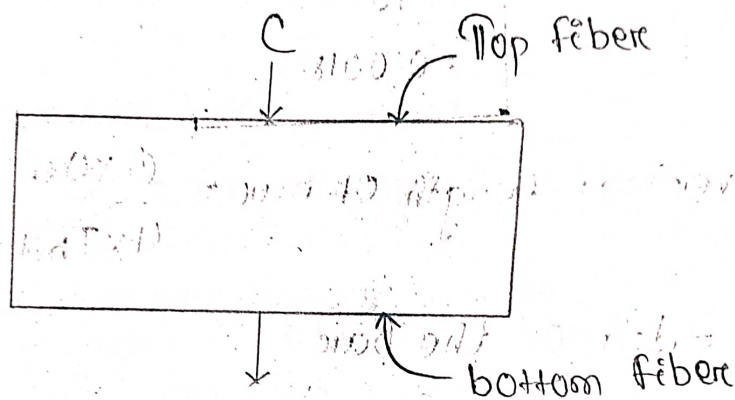 C
Top fibere
bottom fibere